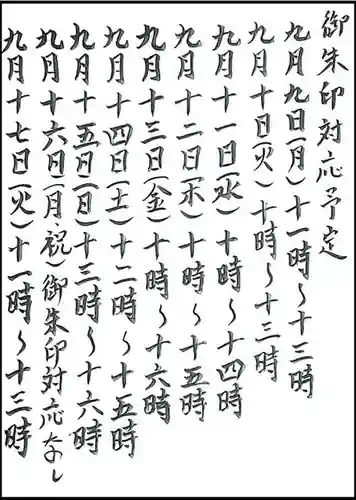 御朱印対応予定
九月九日(月)十一時~十三時
九月十日(火)十時~十三時
九月十一日(水)十時~十四時
九月十二日(木)十時~十五時
九月十三日(金)十時~十六時
九月十四日(土)十二時~十五時
九月十五日(日)十三時~十六時
九月十六日(月祝)御朱印対応なし
九月十七日(火)十一時~十三時